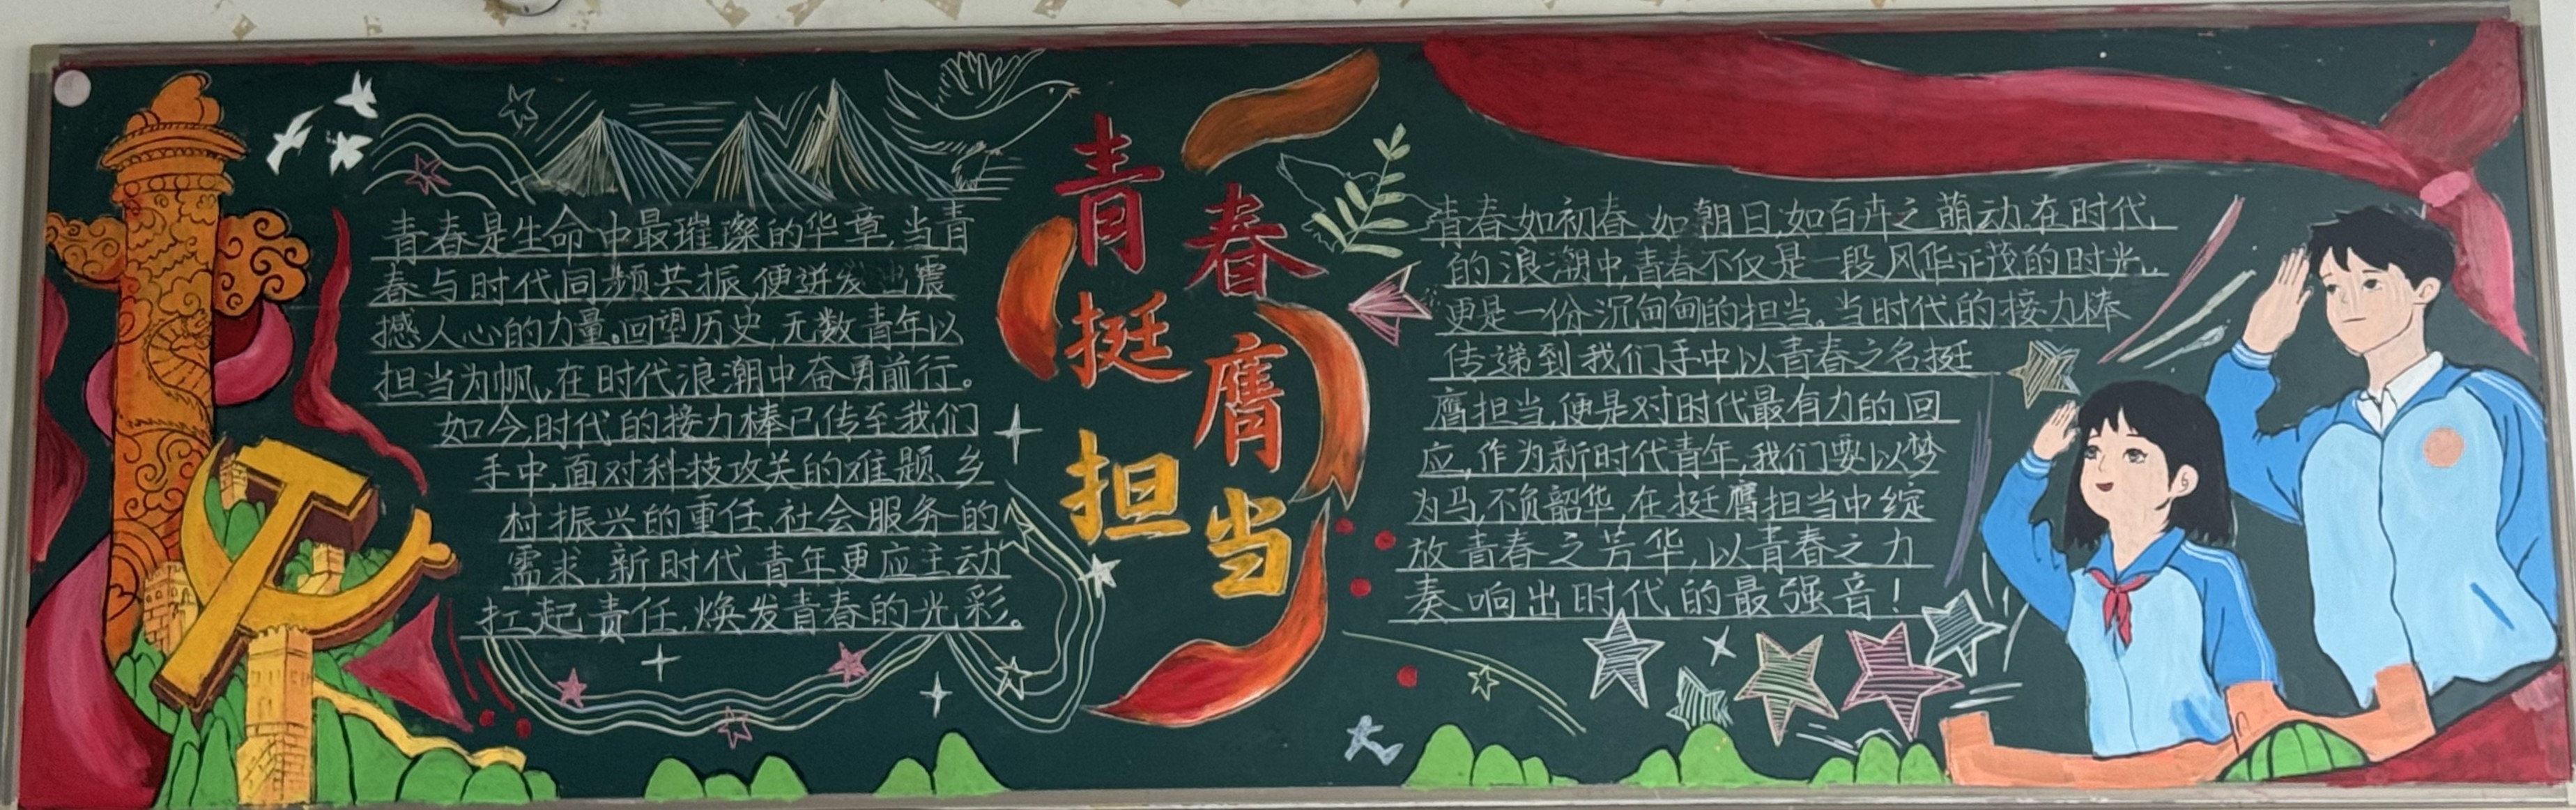 青春是生命中最璀璨的华章,当青
春与时代同频共振,便迸发出震
撼人心的力量。回望历史,无数青年以
担当为帆,在时代浪潮中奋勇前行。
如今,时代的接力棒已传至我们
手中,面对科技攻关的难题、乡
村振兴的重任,社会服务的
需求,新时代青年更应主动
扛起责任,焕发青春的光彩。
青春
挺膺
担当
青春如初春,如朝日,如百卉之萌动。在时代
的浪潮中,青春不仅是一段风华正茂的时光,
更是一份沉甸甸的担当。当时代的接力棒
传递到我们手中以青春之名挺
膺担当,便是对时代最有力的回
应,作为新时代青年,我们要以梦
为马,不负韶华,在挺膺担当中绽
放青春之芳华,以青春之力
奏响出时代的最强音!